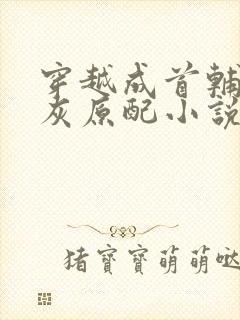 穿越成首輔
灰原配小說
猪寶寶萌萌噠